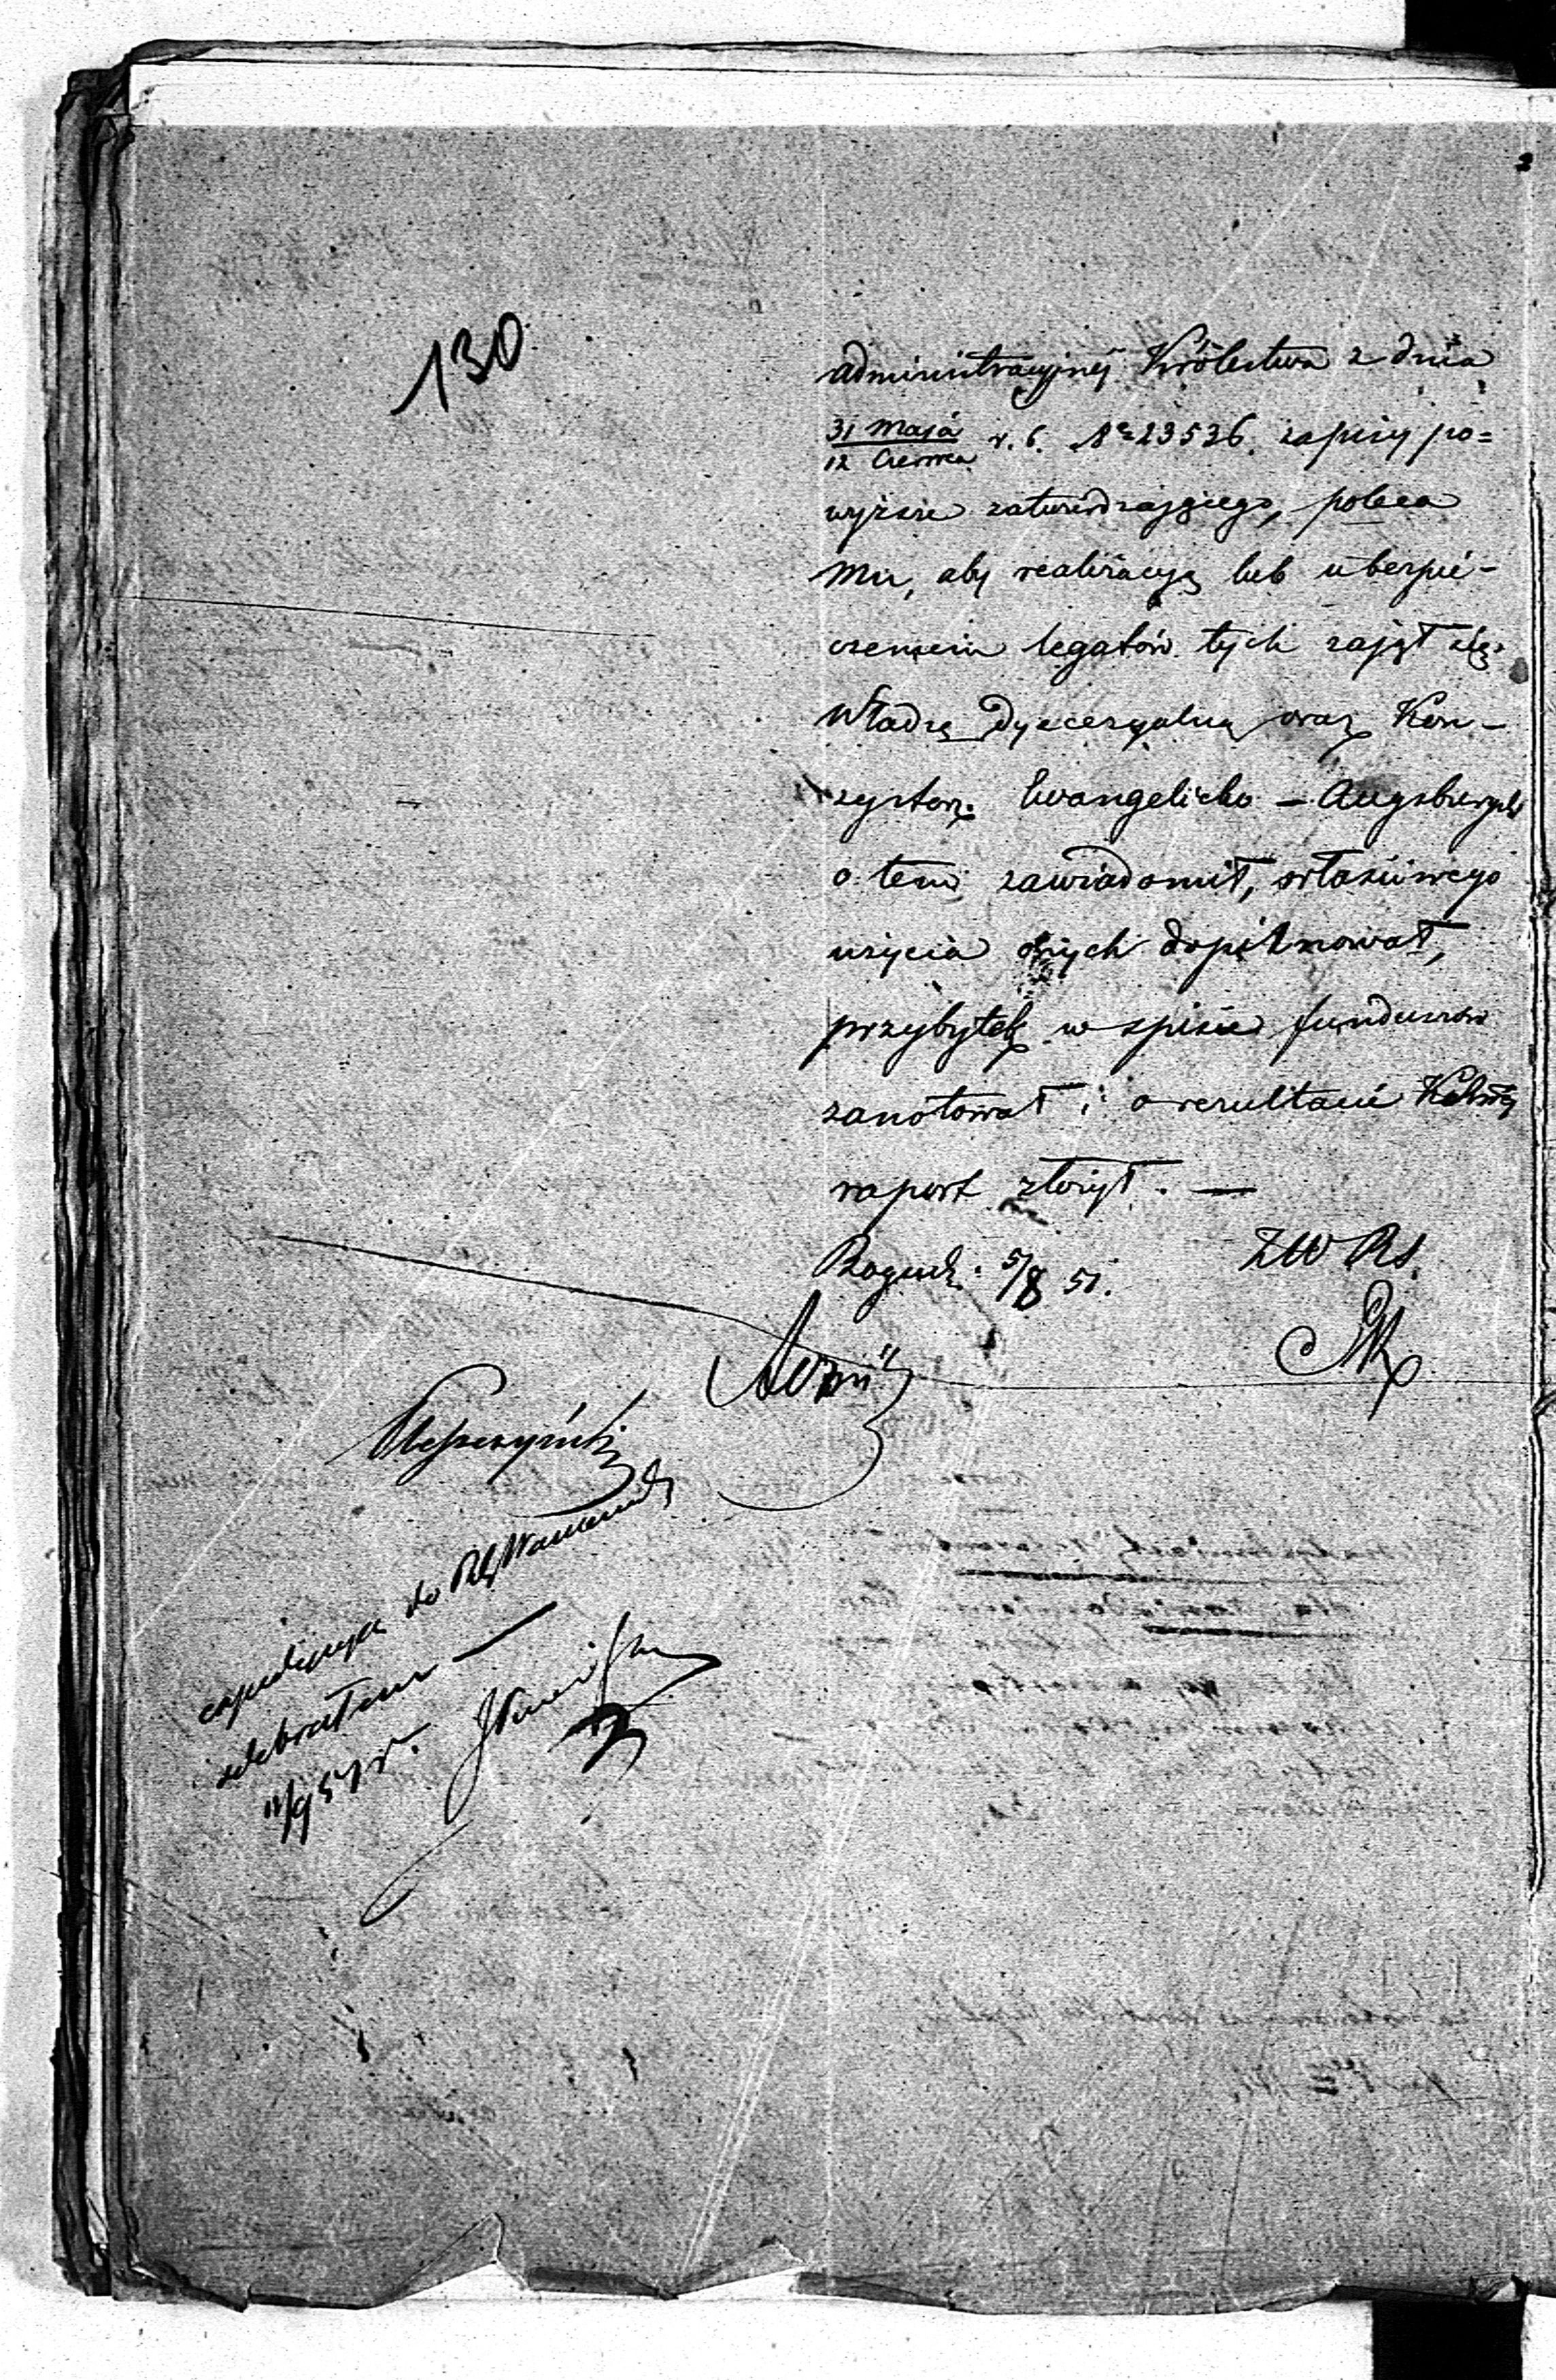 130
administracyjnej Królestwa z dnia
31 Maja
12 Czerwca r. b. Nr 23536. zapisy po=
wyższe zatwierdzającego, poleca
Mu, aby realizacyą lub ubezpie-
czeniem legatów tych zajął się,
Władzę Dyecezyalną oraz Kon-
systorz Ewangelicko - Augsburgski
o tem zawiadomił, właściwego
użycia onych dopilnował,
przybytek w spisie funduszów
zanotował i o rezultacie
raport złożył. —
5/8 51.
expedycyą do
odebrałem —
11/9 51 r.